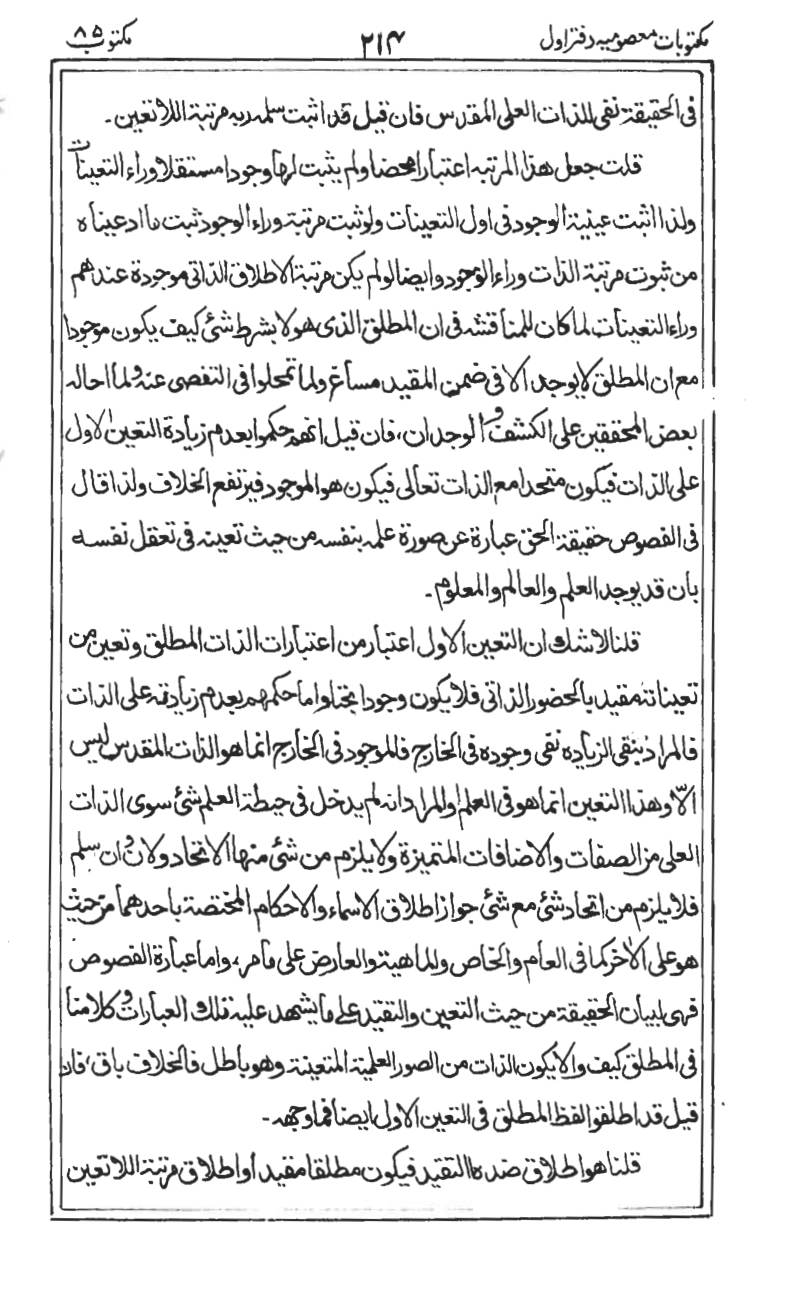 مکتوبات معصومیہ دفتر اول ۲۱۴ مکتوب ۸۵
فی الحقیقۃ نفی للذات العلی المقدس فان قیل قد اثبت سلمہ ربہ مرتبۃ اللاتعین۔
قلت جعل ھذا المرتبہ اعتبارا محضا ولم یثبت لھا وجودا مستقلا وراء التعینات
ولذا اثبت عینیۃ الوجود فی اول التعینات ولو ثبت مرتبۃ وراء الوجود ثبت ما ادعیناہ
من ثبوت مرتبۃ الذات وراء الوجود وایضا لولم یکن مرتبۃ الاطلاق الذاتی موجودة عندھم
وراء التعینات لما کان للمناقشۃ فی ان المطلق الذی ھو لا بشرط شئ کیف یکون موجودا
مع ان المطلق لا یوجد الا فی ضمن المقید مساغ ولما تمحلوا فی التفصی عنہ ولما احالہ
بعض المحققین علی الکشف و الوجدان، فان قیل انھم حکموا بعدم زیادة التعین الاول
علی الذات فیکون متحدا مع الذات تعالی فیکون ھو الموجود فیرتفع الخلاف ولذا قال
فی الفصوص حقیقۃ الحق عبارة عن صورة علمہ بنفسہ من حیث تعینہ فی تعقل نفسہ
بان قد یوجد العلم والعالم والمعلوم۔
قلنا لاشك ان التعین الاول اعتبار من اعتبارات الذات المطلق وتعین من
تعیناتہ مقید بالحضور الذاتی فلا یکون وجودا واما حکمھم بعدم زیادتہ علی الذات
فالمراد بنفی الزیادہ نفی وجودہ فی الخارج فالموجود فی الخارج انما ھو الذات المقدس لیس
الا وھذا التعین انما ھو فی العلم والمراد انہ لم یدخل فی حیطۃ العلم شئ سوی الذات
العلی من الصفات والاضافات المتمیزة ولا یلزم من شئ منھا الاتحاد ولان وان سلم
فلا یلزم من اتحاد شئ مع شئ جواز اطلاق الاسماء والاحکام المختصۃ باحدھما من حیث
ھو علی الاخر کما فی العام والخاص والماھیۃ والعارض علی مامر، واما عبارة الفصوص
فھی لبیان الحقیقۃ من حیث التعین والتقید علی ما یشھد علیہ تلك العبارات و کلامنا
فی المطلق کیف والا یکون الذات من الصور العلمیۃ المتعینۃ وھو باطل فالخلاف باق، فان
قیل قد اطلقوا لفظ المطلق فی التعین الاول ایضا فما وجھہ۔
قلنا ھو اطلاق ضدہ التقید فیکون مطلقا مقیدا و اطلاق مرتبۃ اللاتعین